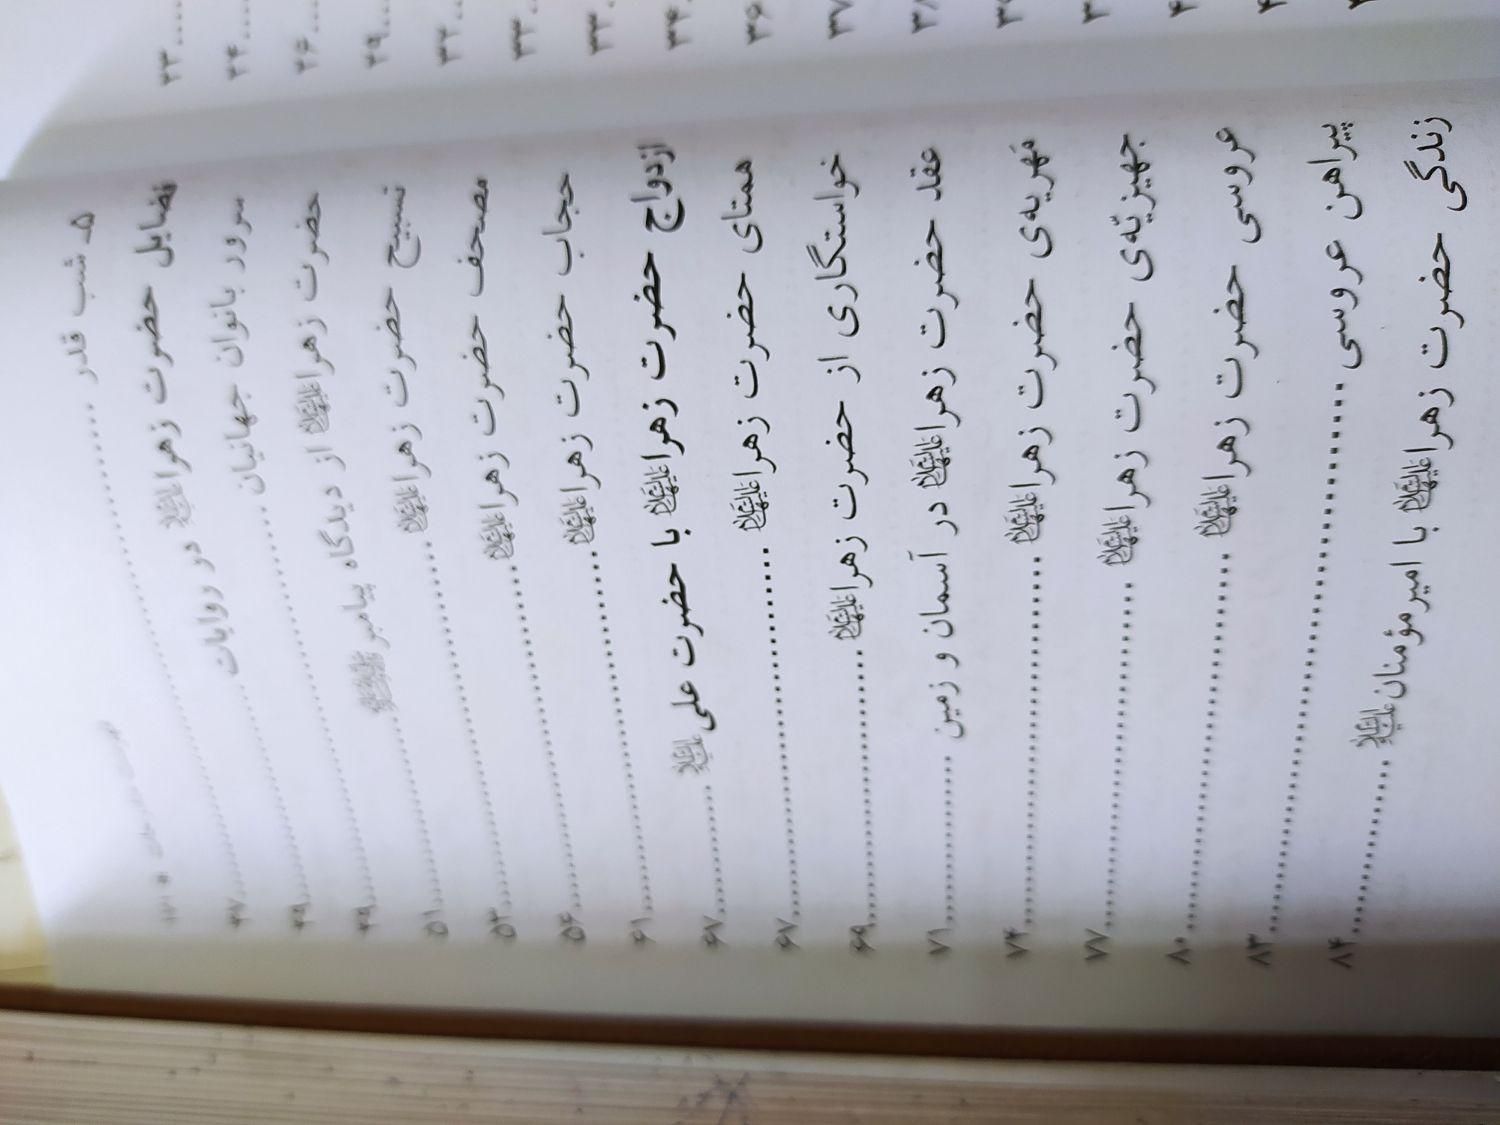 ۲۳
۲۴
۲۶
۲۹
۳۲
۳۳
۳۳
۳۴
۳۶
۳۷
۵. شب قدر ........ ۴۷
فضایل حضرت زهرا علیها السلام در روایات ........ ۴۹
سرور بانوان جهانیان ........ ۴۹
حضرت زهرا علیها السلام از دیدگاه پیامبر ﷺ ........ ۵۱
تسبیح حضرت زهرا علیها السلام ........ ۵۳
مصحف حضرت زهرا علیها السلام ........ ۵۶
حجاب حضرت زهرا علیها السلام ........ ۶۱
ازدواج حضرت زهرا علیها السلام با حضرت علی علیه السلام ........ ۶۷
همتای حضرت زهرا علیها السلام ........ ۶۷
خواستگاری از حضرت زهرا علیها السلام ........ ۶۹
عقد حضرت زهرا علیها السلام در آسمان و زمین ........ ۷۱
مهریه‌ی حضرت زهرا علیها السلام ........ ۷۴
جهیزیّه‌ی حضرت زهرا علیها السلام ........ ۷۷
عروسی حضرت زهرا علیها السلام ........ ۸۰
پیراهن عروسی ........ ۸۳
زندگی حضرت زهرا علیها السلام با امیرمؤمنان علیه السلام ........ ۸۴